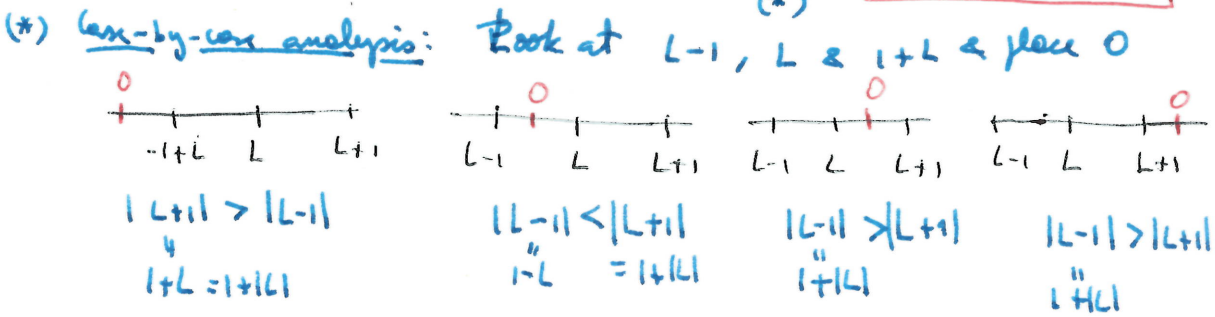 (*)
(*) Case-by-case analysis: Look at L-1, L & 1+L & place 0
0 0 0 0
-1+L L L+1 L-1 L L+1 L-1 L L+1 L-1 L L+1
|L+1| > |L-1| |L-1| < |L+1| |L-1| > |L+1| |L-1| > |L+1|
" " " "
1+L = 1+|L| 1-L = 1+|L| 1+|L| 1+|L|